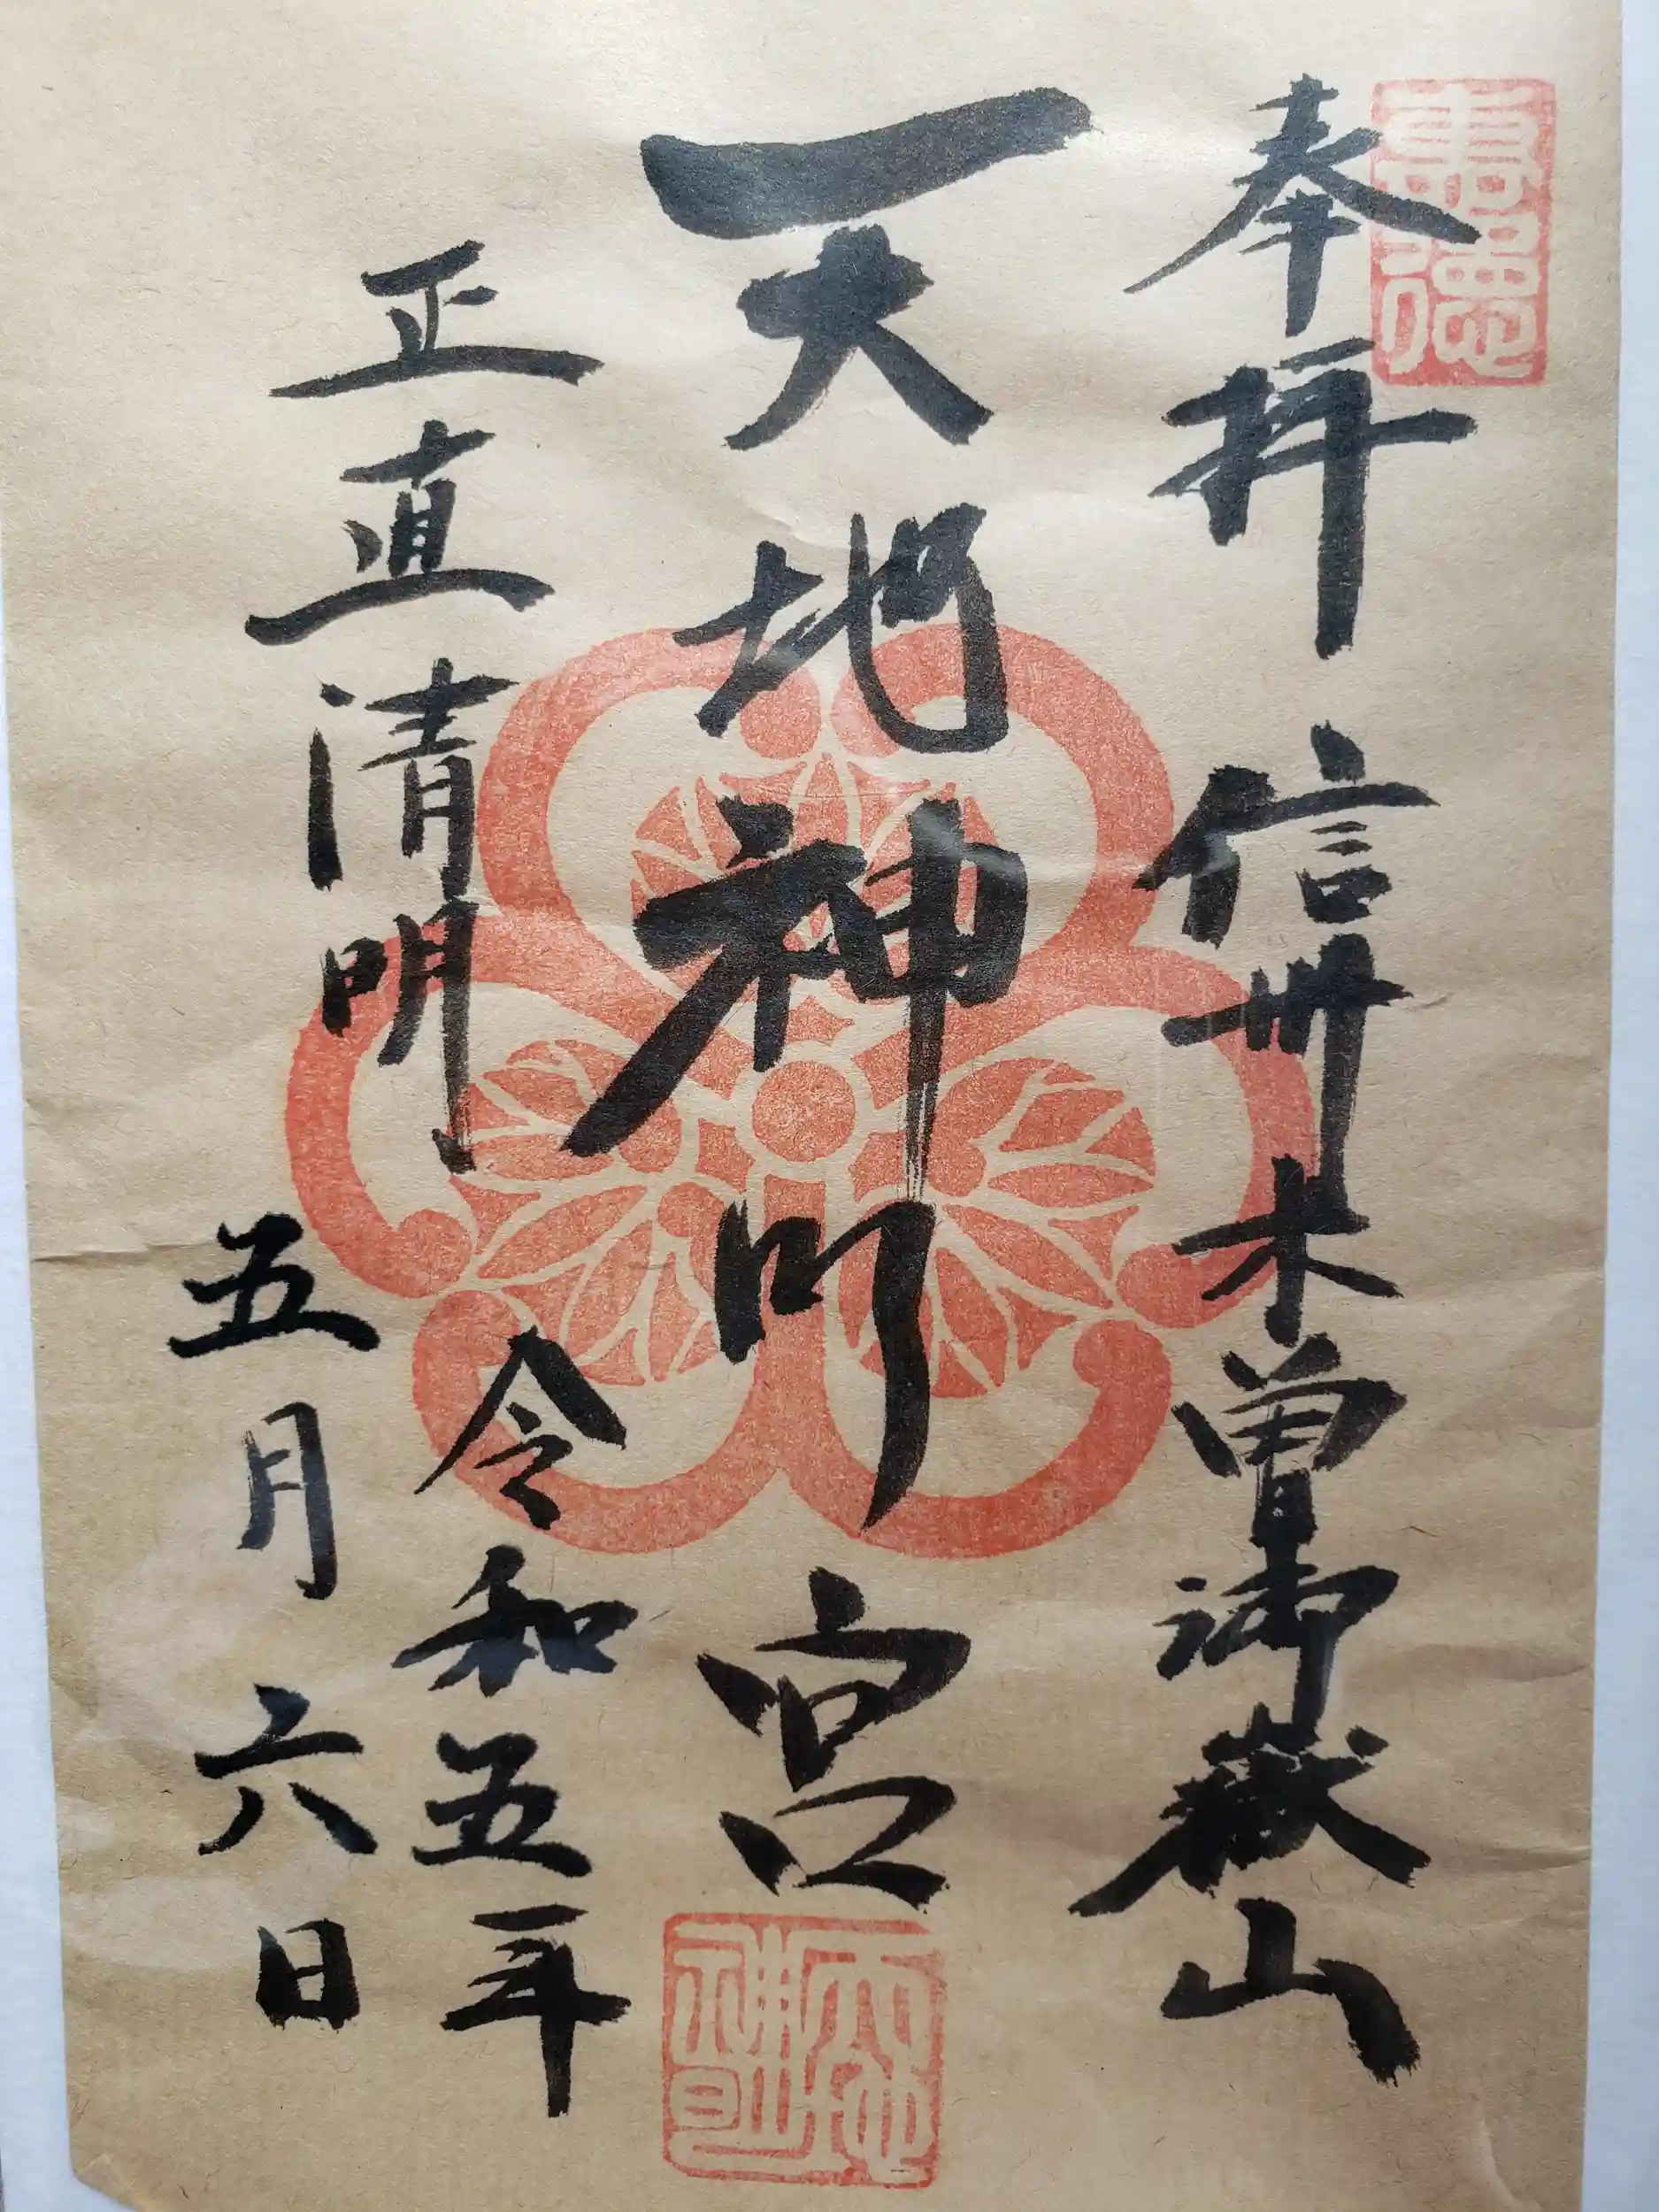 奉拝 信州木曽御嶽山
天地神明宮
正直清明
令和五年
五月六日
天地神明